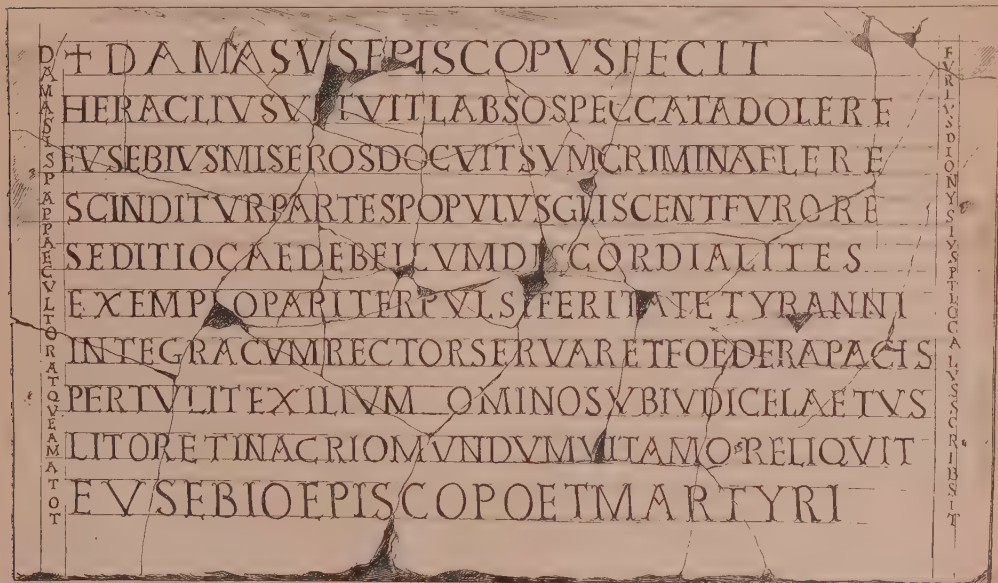 DAMASISPAPPAECVLTORATQVEAMATOT
+ DAMASVSEPISCOPVSFECIT
HERACLIVSVETVITLABSOSPECCATADOLERE
EVSEBIVSMISEROSDOCVITSVMCRIMINAFLERE
SCINDITVRPARTESPOPVLVSGLISCENTFVRORE
SEDITIOCAEDEBELLVMDISCORDIALITES
EXEMPLOPARITERPVLSIFERITATETYRANNI
INTEGRACVMRECTORSERVARETFOEDERAPACIS
PERTVLITEXILIVM OMINOSVBIVDICELAETVS
LITORETINACRIOMVNDVMVITAMQSRELIQVIT
EVSEBIOEPISCOPOETMARTYRI
FVRIVSDIONYSIVSFILOCALVSSCRIBSIT